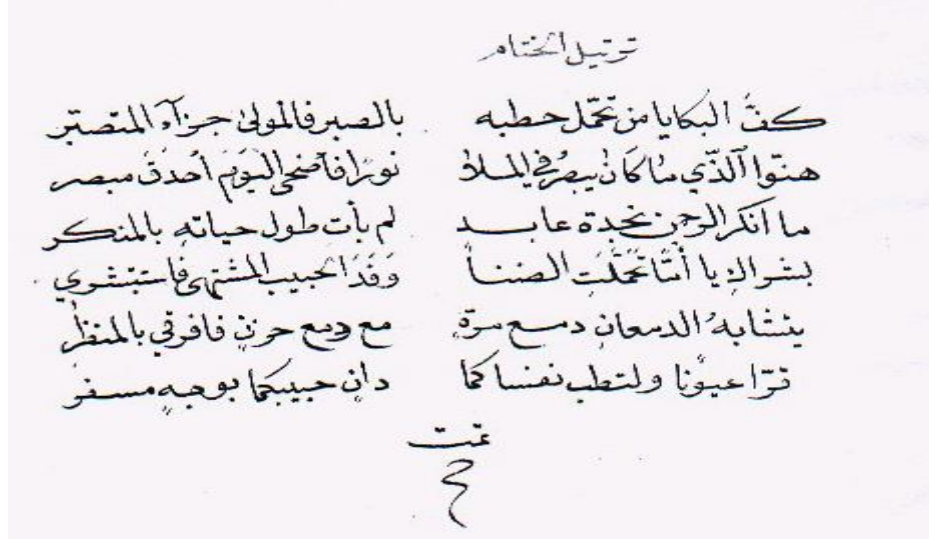 ترتيل الختام
كفَّ البكا يا من تحمّل خطبه بالصبر فالمولىٰ جزآء المتصبّر
هنّوا ٱلّذي ما كان يبصر في الملأ نورًا فأضحى اليَومَ أحدَقَ مبصر
ما انكر الرحمن نجدة عابد لم يأت طول حياتهِ بالمنكر
بشراكِ يا أمّا تحمَّلَت الضنا وَفَدَ الحبيب المشتهى فاستبشري
يتشابهُ الدمعانِ دمع مسرّةٍ مع دمع حزنٍ فافرقي بالمنظرِ
قرّا عيونًا ولتطب نفساكما دانٍ حبيبكما بوجهٍ مسفر
تمت